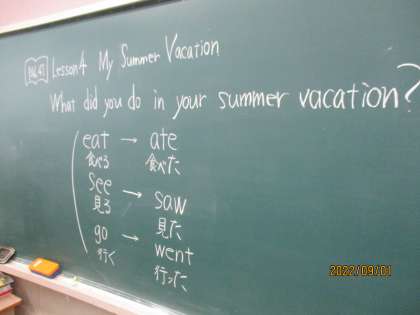 Lesson4 My Summer Vacation
What did you do in your summer vacation?
eat → ate
食べる 食べた
see → saw
見る 見た
go → went
行く 行った
2022/09/01